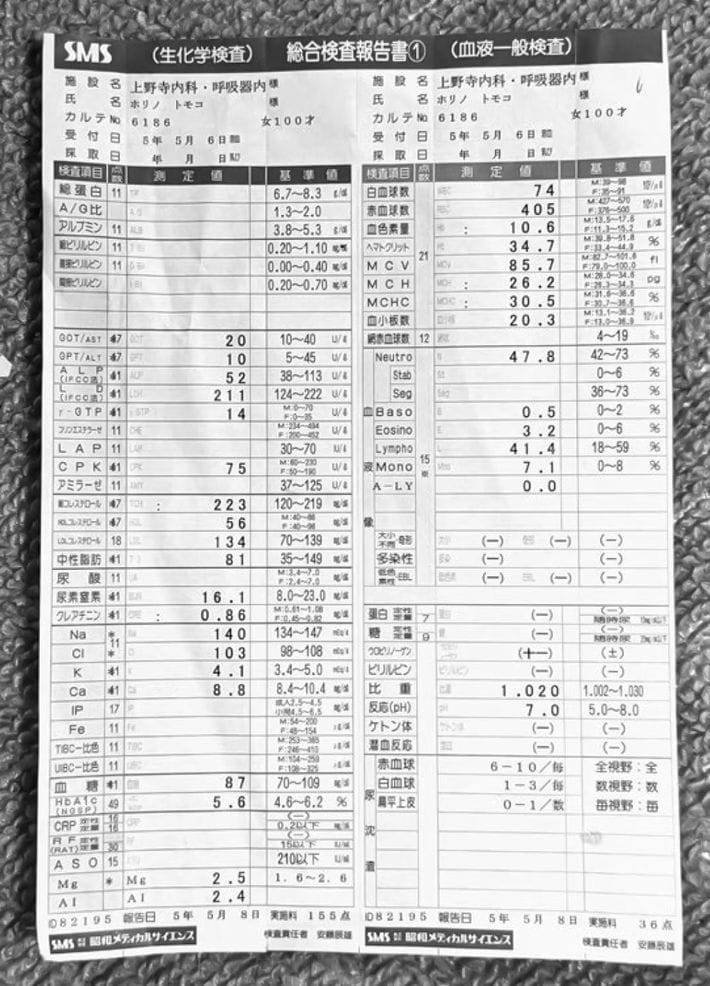 SMS (生化学検査) 総合検査報告書① (血液一般検査)
施設名 上野寺内科・呼吸器内 様
氏名 ホリノ トモコ 様
カルテNo 6186 女100才
受付日 5年 5月 6日
採取日 年 月 日
検査項目 点数 測定値 基準値
総蛋白 11 TP 6.7~8.3 g/dl
A/G比 A/G 1.3~2.0
アルブミン 11 ALB 3.8~5.3 g/dl
総ビリルビン 11 0.20~1.10
直接ビリルビン 11 0.00~0.40
間接ビリルビン 0.20~0.70
GOT/AST *17 GOT 20 10~40 U/ℓ
GPT/ALT *17 GPT 10 5~45 U/ℓ
ALP (IFCC法) *11 ALP 52 38~113 U/ℓ
LD (IFCC法) *11 LDH 211 124~222 U/ℓ
γ-GTP *11 γ-GTP 14 M:0~70 F:0~35 U/ℓ
コリンエステラーゼ 11 CHE M:234~494 F:200~452 U/ℓ
LAP 11 LAP 30~70 U/ℓ
CPK *11 CPK 75 M:60~230 F:50~190 U/ℓ
アミラーゼ 11 AMY 37~125 U/ℓ
総コレステロール *17 TCH : 223 120~219 mg/dl
HDLコレステロール *17 HDL 56 M:40~86 F:40~96 mg/dl
LDLコレステロール 18 LDL 134 70~139 mg/dl
中性脂肪 *11 81 35~149 mg/dl
尿酸 11 UA M:3.4~7.0 F:2.4~7.0 mg/dl
尿素窒素 *11 BUN 16.1 8.0~23.0 mg/dl
クレアチニン *11 CRE : 0.86 M:0.61~1.08 F:0.45~0.82 mg/dl
Na * 11 Na 140 134~147 mEq/ℓ
Cl * Cl 103 98~108 mEq/ℓ
K *11 K 4.1 3.4~5.0 mEq/ℓ
Ca *11 Ca 8.8 8.4~10.4 mg/dl
IP 17 IP 成人2.5~4.5 小児4.5~6.5 mg/dl
Fe 11 Fe M:54~200 F:48~154 μg/dl
TIBC-比色 11 TIBC M:253~365 F:246~410 μg/dl
UIBC-比色 11 UIBC M:104~259 F:108~325 μg/dl
血糖 *11 血糖 87 70~109 mg/dl
HbA1c (NGSP) 49 5.6 4.6~6.2 %
CRP 定性 16 (−)
定量 16 0.2以下 mg/dl
RF (RAT) 定性 (−)
定量 30 15以下 IU/mℓ
ASO 15 210以下 IU/mℓ
Mg * Mg 2.5 1.6~2.6
Al Al 2.4
ID82195 報告日 5年 5月 8日 実施料 155点
SMS 株式会社 昭和メディカルサイエンス 検査責任者 安藤辰雄
施設名 上野寺内科・呼吸器内 様
氏名 ホリノ トモコ 様
カルテNo 6186 女100才
受付日 5年 5月 6日
採取日 年 月 日
検査項目 点数 測定値 基準値
白血球数 WBC 74 M:39~98 F:35~91 10²/μℓ
赤血球数 RBC 405 M:427~570 F:376~500 10⁴/μℓ
血色素量 Hb : 10.6 M:13.5~17.6 F:11.3~15.2 g/dl
ヘマトクリット Ht 34.7 M:39.8~51.8 F:33.4~44.9 %
MCV 21 MCV 85.7 M:82.7~101.6 F:79.0~100.0 fl
MCH MCH : 26.2 M:28.0~34.6 F:26.3~34.3 pg
MCHC MCHC : 30.5 M:31.6~36.6 F:30.7~36.6 %
血小板数 血小板 20.3 M:13.1~36.2 F:13.0~36.9 10⁴/μℓ
網赤血球数 12 4~19 ‰
血液像 15 ※
Neutro N 47.8 42~73 %
Stab St 0~6 %
Seg Seg 36~73 %
Baso B 0.5 0~2 %
Eosino E 3.2 0~6 %
Lympho L 41.4 18~59 %
Mono Mono 7.1 0~8 %
A-LY 0.0
大小不同・奇形 大小 (−) 奇形 (−) (−)
多染性 多染 (−) (−)
低色素性・EBL 低色素 (−) EBL (−) (−)
蛋白 定性 定量 7 蛋白 (−) (−) 随時尿
糖 定性 定量 9 糖 (−) (−) 随時尿
ウロビリノーゲン (+−) (±)
ビリルビン ビリルビン (−) (−)
比重 比重 1.020 1.002~1.030
反応(pH) pH 7.0 5.0~8.0
ケトン体 ケトン体 (−) (−)
潜血反応 潜血 (−) (−)
尿沈渣
赤血球 6-10/毎 全視野:全
白血球 1-3/毎 数視野:数
扁平上皮 0-1/数 毎視野:毎
ID82195 報告日 5年 5月 8日 実施料 36点
SMS 株式会社 昭和メディカルサイエンス 検査責任者 安藤辰雄